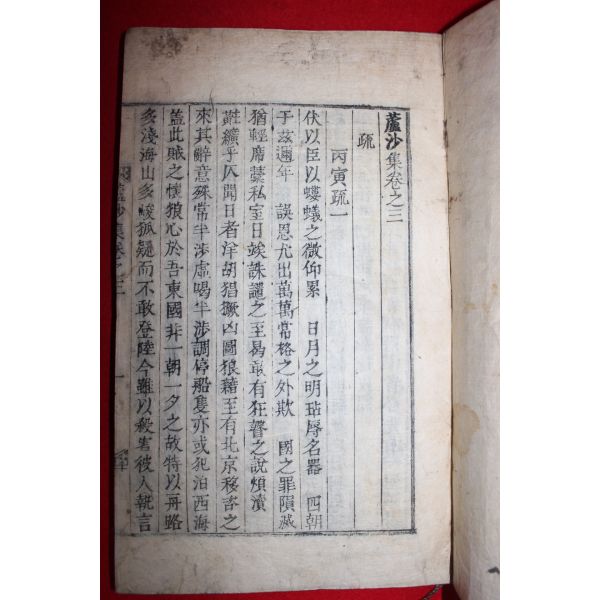 蘆沙集卷之三
疏
丙寅疏一
伏以臣以螻蟻之微仰累　日月之明玷辱名器　四朝
于玆邇年　誤恩尤出萬萬常格之外欺　國之罪隕滅
猶輕席藁私室日竢誅譴之至曷敢有狂瞽之說煩瀆
黈纊乎仄聞日者洋胡猖獗凶圖狼藉至有北京移咨之
來其辭意殊常半涉虛喝半涉調停船隻亦或犯泊西海
盖此賊之懐狼心於吾東國非一朝一夕之故特以舟路
多淺海山多峻狐疑而不敢登陸今雖以殺害彼人執言
蘆沙集卷之三　一